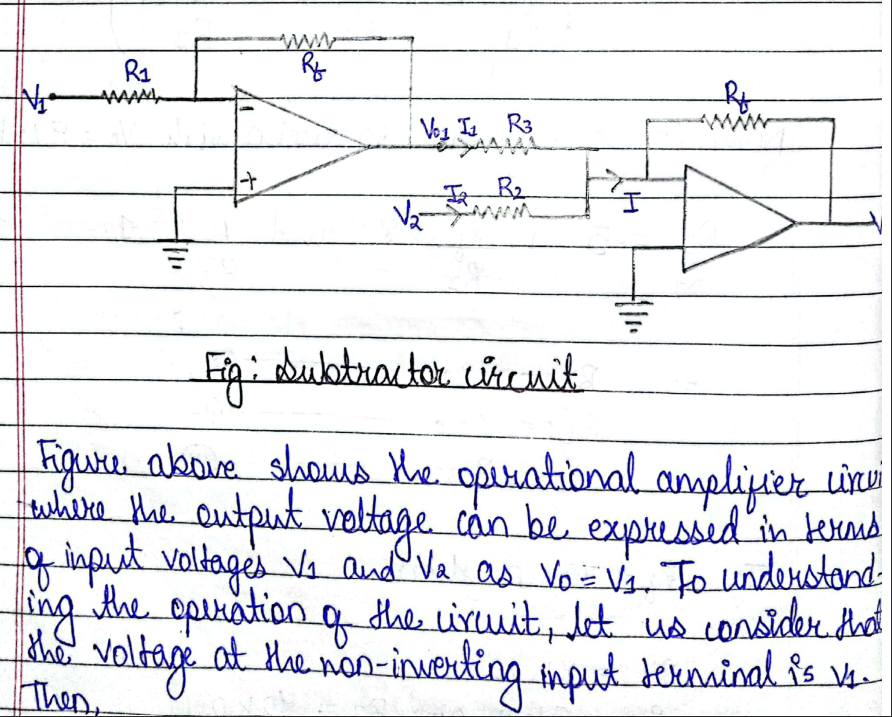 Rf
R1
V1
-
+
Vo1 I1 R3
I2 R2
V2
I
Rf
V
Fig: Subtractor circuit
Figure above shows the operational amplifier circui
where the output voltage can be expressed in terms
of input voltages V1 and V2 as Vo = V1. To understand-
ing the operation of the circuit, let us consider that
the voltage at the non-inverting input terminal is V1.
Then,